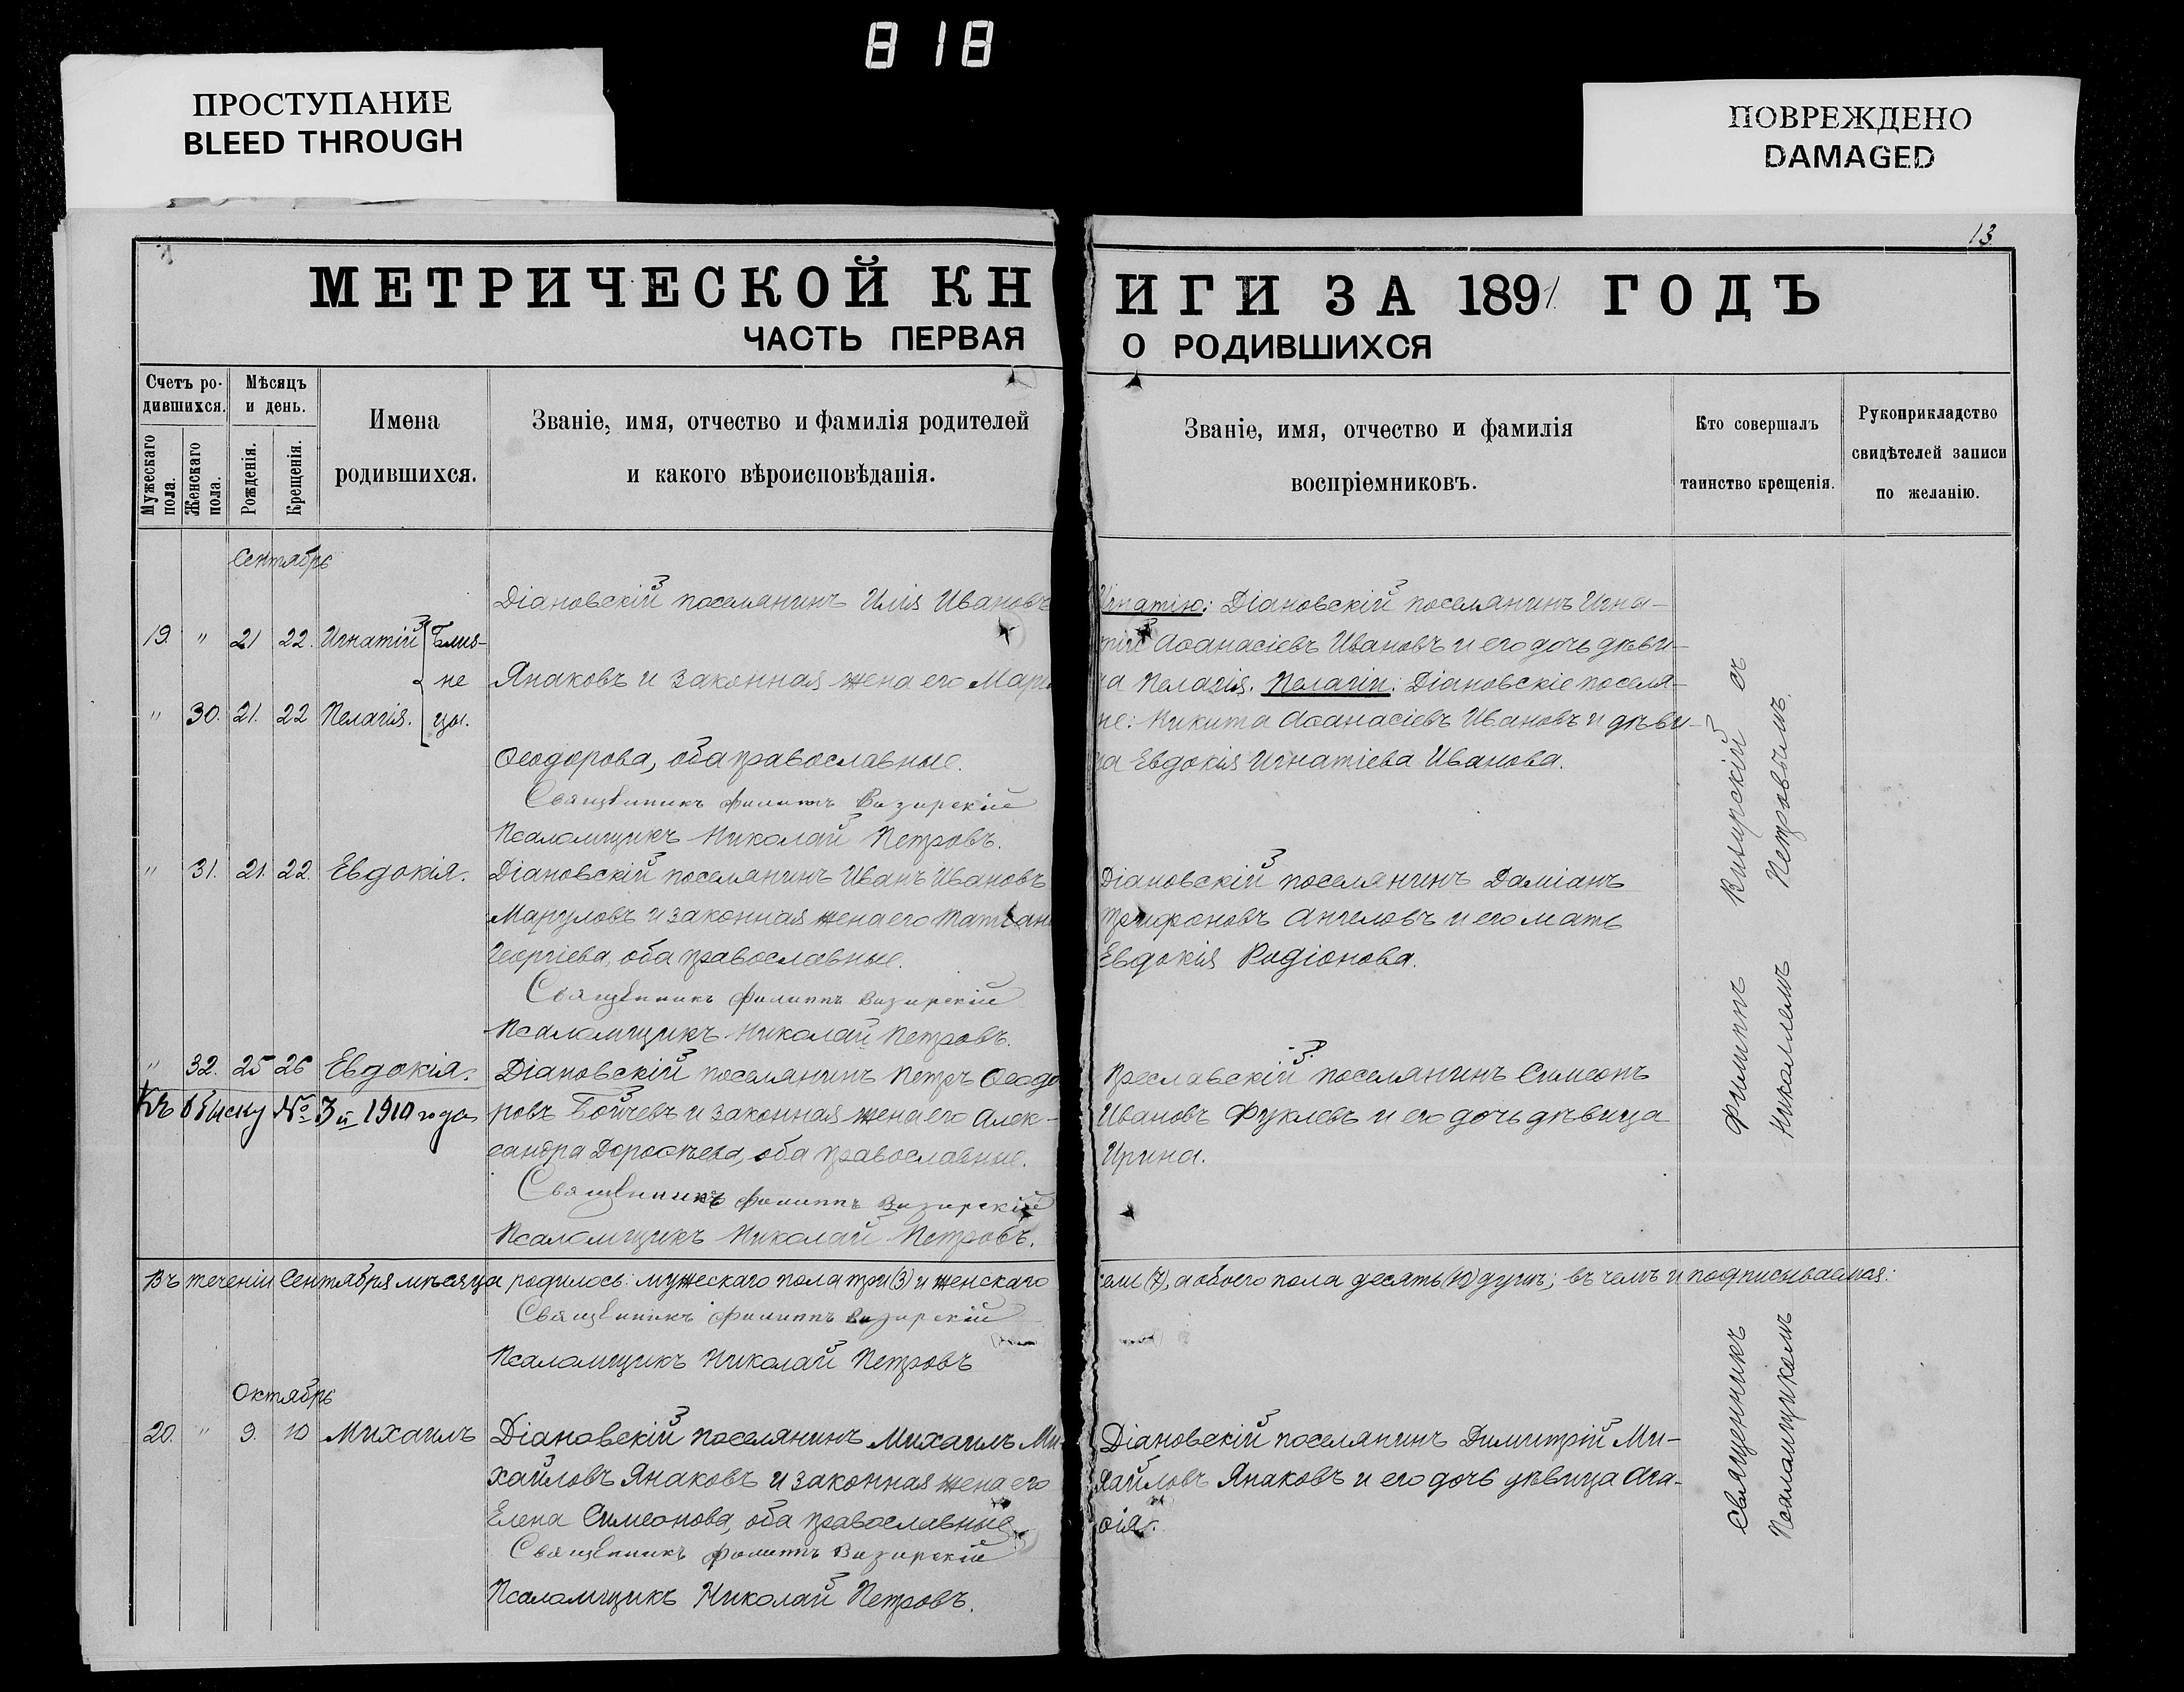 818
ПРОСТУПАНИЕ
BLEED THROUGH
ПОВРЕЖДЕНО
DAMAGED
13
МЕТРИЧЕСКОЙ КН
ИГИ ЗА 1891 ГОДЪ
ЧАСТЬ ПЕРВАЯ
О РОДИВШИХСЯ
Счетъ ро-
дившихся.
Мужескаго
пола.
Женскаго
пола.
Мѣсяцъ
и день.
Рожденія.
Крещенія.
Имена
родившихся.
Званіе, имя, отчество и фамилія родителей
и какого вѣроисповѣданія.
Званіе, имя, отчество и фамилія
воспріемниковъ.
Кто совершалъ
таинство крещенія.
Рукоприкладство
свидѣтелей записи
по желанію.
Сентябрь
Діановскій поселянинъ Илія Ивановъ
19. " 21 22. Игнатій Близ-
не
Янаковъ и законная жена его Марі
" 30. 21. 22 Пелагія. цы.
Ѳеодорова, оба православные.
Священникъ Филиппъ Визирскій
Псаломщикъ Николай Петровъ.
Игнатію: Діановскій поселянинъ Игна-
тій Аѳанасіевъ Ивановъ и его дочь дѣви-
ца Пелагія. Пелагіи: Діановскіе поселя-
не: Никита Аѳанасіевъ Ивановъ и дѣви-
ца Евдокія Игнатіева Иванова.
" 31. 21. 22. Евдокія.
Діановскій поселянинъ Иванъ Ивановъ
Маруловъ и законная жена его Татіан
Георгіева, оба православные.
Священникъ Филиппъ Визирскій
Псаломщикъ Николай Петровъ.
Діановскій поселянинъ Даміанъ
Трифоновъ Ангеловъ и его мать
Евдокія Родіонова.
" 32. 25 26 Евдокія.
Къ обыску № 3 й 1910 года
Діановскій поселянинъ Петръ Ѳеодо
ровъ Бойчевъ и законная жена его Алек-
сандра Дороѳѣева, оба православные.
Священникъ Филиппъ Визирскій
Псаломщикъ Николай Петровъ.
Преславскій поселянинъ Симеонъ
Ивановъ Фуклевъ и его дочь дѣвица
Ирина.
Въ теченіи Сентября мѣсяца родилось: мужескаго пола три (3) и женскаго
семь (7), а обоего пола десять (10) душъ; въ чемъ и подписываемся:
Священникъ Филиппъ Визирскій
Псаломщикъ Николай Петровъ
Октябрь
20. " 9. 10 Михаилъ
Діановскій поселянинъ Михаилъ Ми-
хайловъ Янаковъ и законная жена его
Елена Симеонова, оба православные
Священникъ Филиппъ Визирскій
Псаломщикъ Николай Петровъ.
Діановскій поселянинъ Димитрій Ми-
хайловъ Янаковъ и его дочь дѣвица Ага-
ѳія.
Священникъ Филиппъ Визирскій съ
Псаломщикомъ Николаемъ Петровымъ.